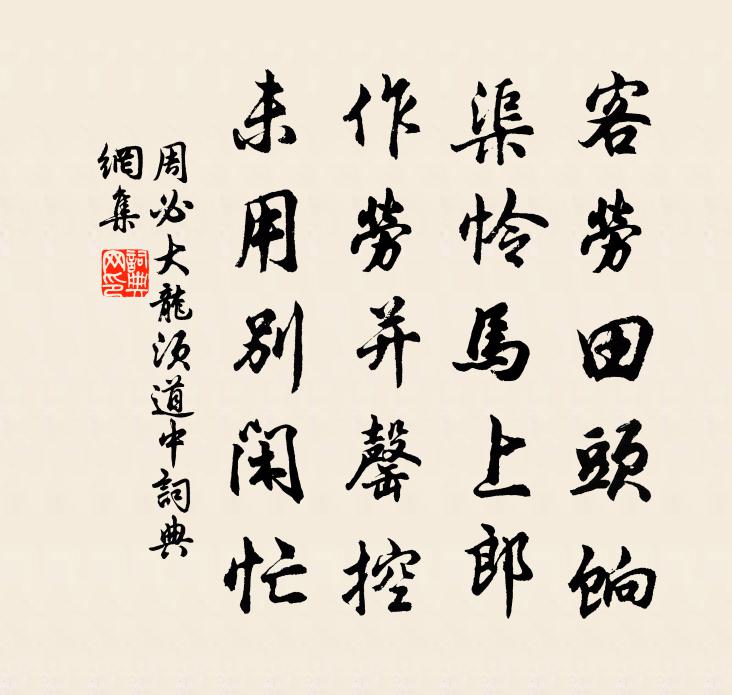 客勞田頭餉
渠怜馬上郎
作勞并罄控
未用別閑忙
周必大龍湏道中詞典
網集
詞典
网印